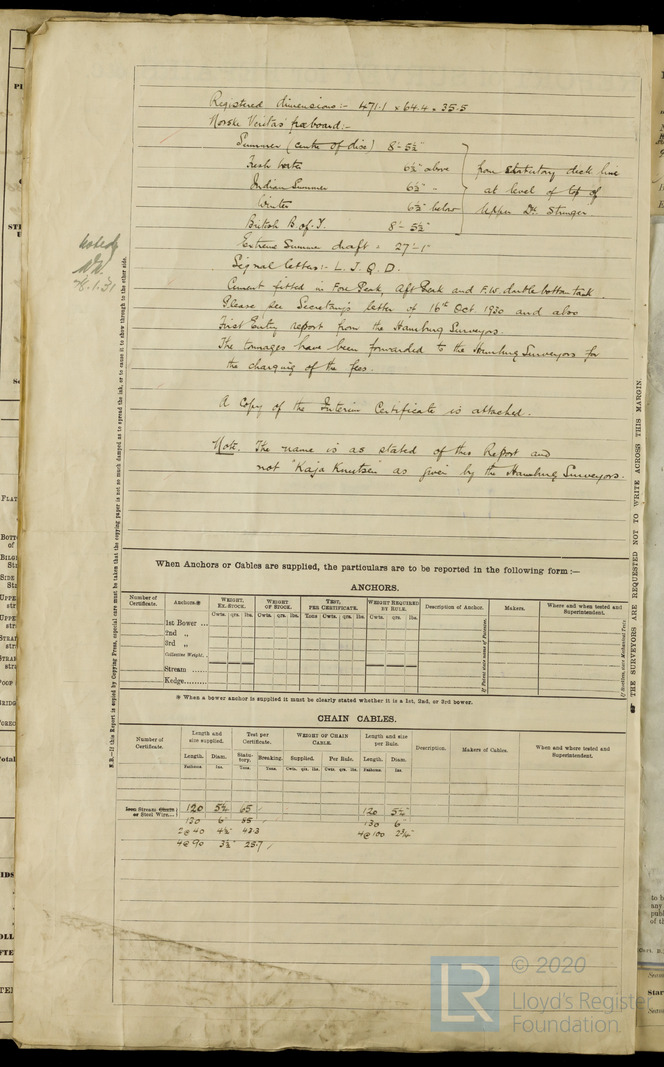 Registered dimensions:- 471.1 x 64.4 x 35.5
Norske Veritas' freeboard:-
Summer (centre of disc) 8'- 5½"
Fresh water 6½" above from statutory deck line
Indian Summer 6½" " at level of top of
Winter 6½" below Upper Dk. Stringer.
British B. of T. 8'- 5½"
Extreme Summer draft = 27'-1"
Signal letters:- L. J. Q. D.
Cement fitted in Fore Peak, Aft Peak and F.W. double bottom tank.
Please see Secretary's letter of 16th Oct 1930 and also
First Entry report from the Hamburg Surveyors.
The tonnages have been forwarded to the Hamburg Surveyors for
the charging of the fees.
A copy of the Interim Certificate is attached.
Note. The name is as stated of this Report and
not "Kaja Knutsen" as given by the Hamburg Surveyors.
Noted
.1.31
N.B.—If this Report is copied by Copying Press, especial care must be taken that the copying paper is not so much damped as to spread the ink, or to cause it to show through to the other side.
THE SURVEYORS ARE REQUESTED NOT TO WRITE ACROSS THIS MARGIN.
When Anchors or Cables are supplied, the particulars are to be reported in the following form :—
ANCHORS.
Number of Certificate. Anchors.* WEIGHT, EX-STOCK. WEIGHT OF STOCK. TEST, PER CERTIFICATE. WEIGHT REQUIRED BY RULE. Description of Anchor. Makers. Where and when tested and Superintendent.
Cwts. qrs. lbs. Cwts. qrs. lbs. Tons Cwts. qrs. lbs. Cwts. qrs. lbs.
1st Bower ...
2nd „
3rd „
Collective Weight.
Stream ......
Kedge.........
If Patent state name of Patentee.
* When a bower anchor is supplied it must be clearly stated whether it is a 1st, 2nd, or 3rd bower.
CHAIN CABLES.
Number of Certificate. Length and size supplied. Test per Certificate. WEIGHT OF CHAIN CABLE. Length and size per Rule. Description. Makers of Cables. When and where tested and Superintendent.
Length. Diam. Statutory. Breaking. Supplied. Per Rule. Length. Diam.
Fathoms. Ins. Tons. Tons. Cwts. qrs. lbs. Cwts. qrs. lbs. Fathoms. Ins.
Iron Stream Chain or Steel Wire... 120 5½ 65 120 5½"
130 6" 85 130 6"
2 @ 40 4½" 43.3 4 @ 100
4 @ 90 3½" 25.7
© 2020
LR
Lloyd's Register
Foundation